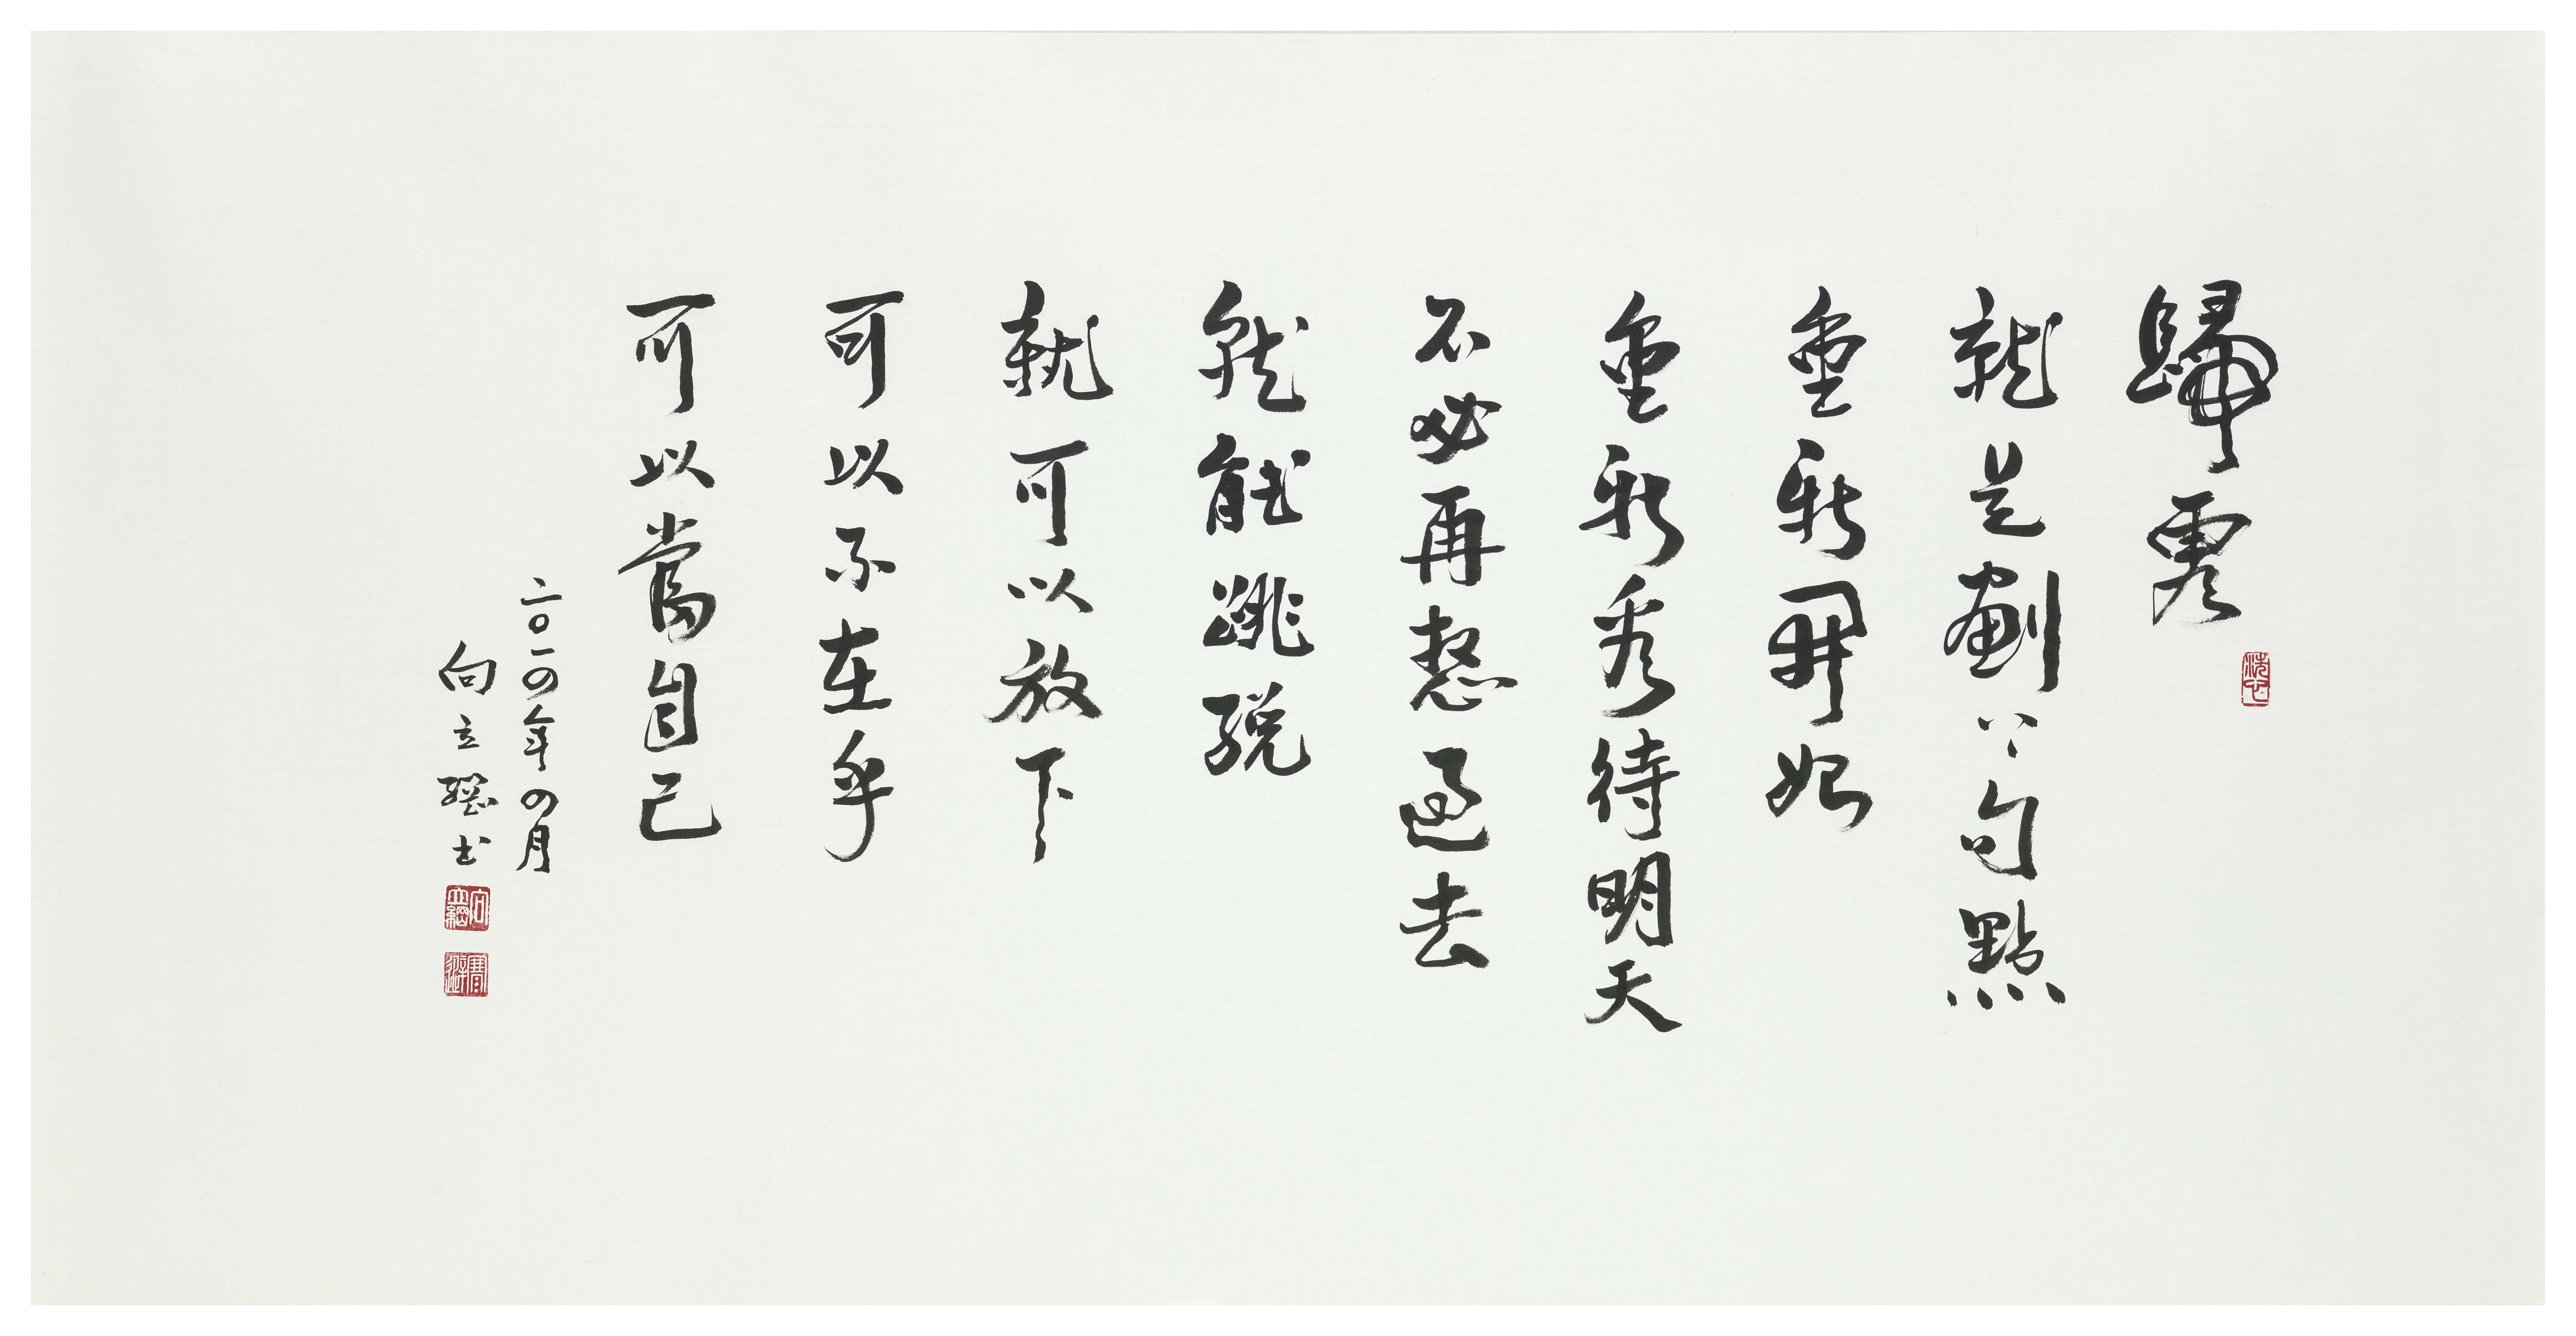 歸零
就是劃下句點
重新開始
重新看待明天
不必再過去
就能跳脫
就可以放下
可以不在乎
可以當自己
二〇一四年四月
向立綱书
向立綱